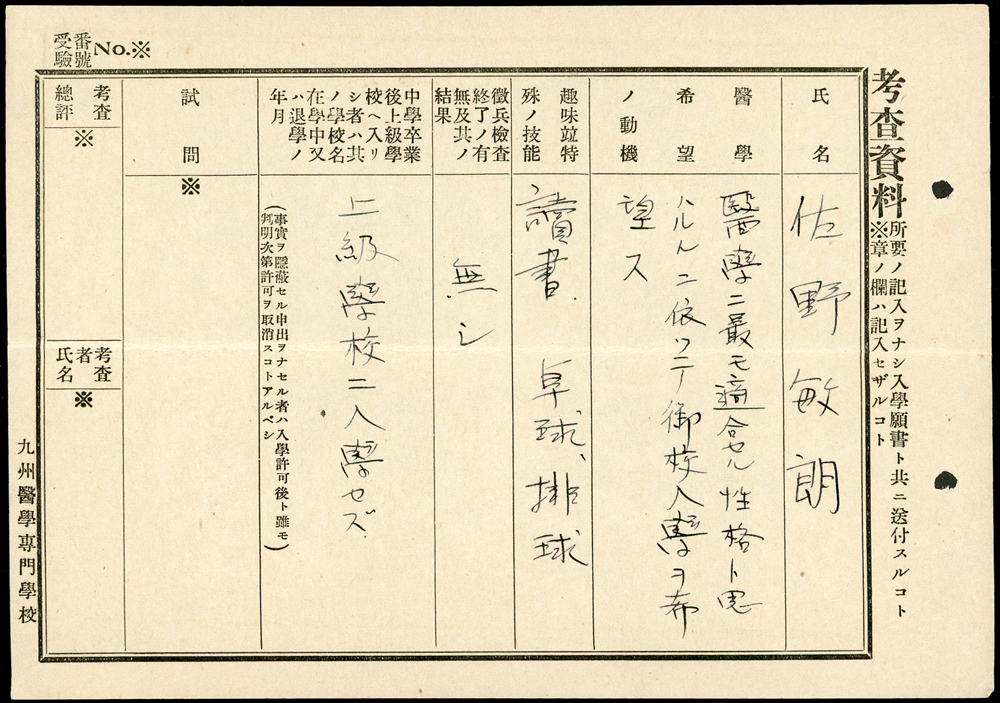 考査資料
所要ノ記入ヲナシ入學願書ト共ニ送付スルコト
※章ノ欄ハ記入セザルコト
氏名
佐野敏朗
醫學
希望
ノ動機
醫學ニ最モ適合セル性格ト思
ハルルニ依ツテ御校入學ヲ希
望ス
趣味竝特
殊ノ技能
讀書 卓球、排球
徵兵檢査
終了ノ有
無及其ノ
結果
無シ
中學卒業
後上級學
校ヘ入リ
シ者ハ其
ノ學校名
在學中又
ハ退學ノ
年月
上級學校ニ入學セズ
(事實ヲ隱蔽セル申出ヲナセル者ハ入學許可後ト雖モ
判明次第許可ヲ取消スコトアルベシ)
試問
※
受驗番號 No.※
考査
總評
※
考査
者
氏名
※
九州醫學專門學校